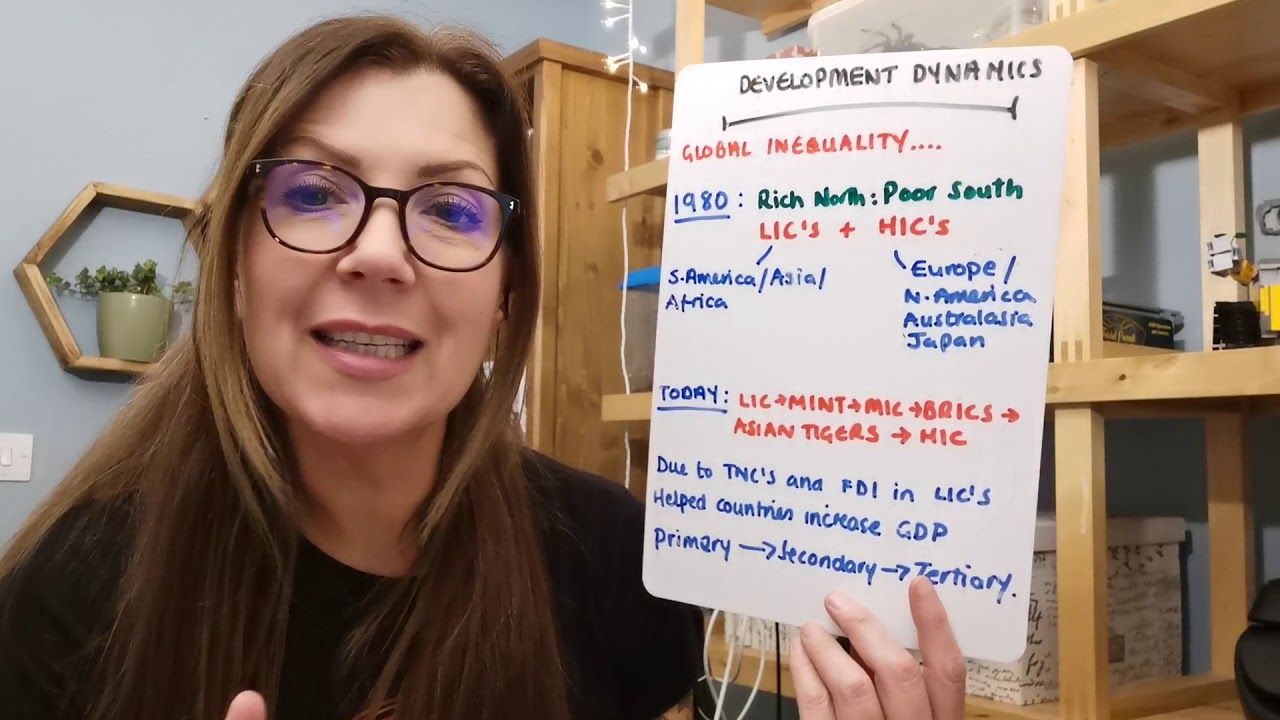 DEVELOPMENT DYNAMICS
GLOBAL INEQUALITY....
1980: Rich North: Poor South
LIC's + HIC's
S.America/Asia/
Africa
Europe/
N.America
Australasia
Japan
TODAY: LIC→MINT→MIC→BRICS→
ASIAN TIGERS → HIC
Due to TNC's and FDI in LIC's
Helped countries increase GDP
Primary → Secondary → Tertiary.